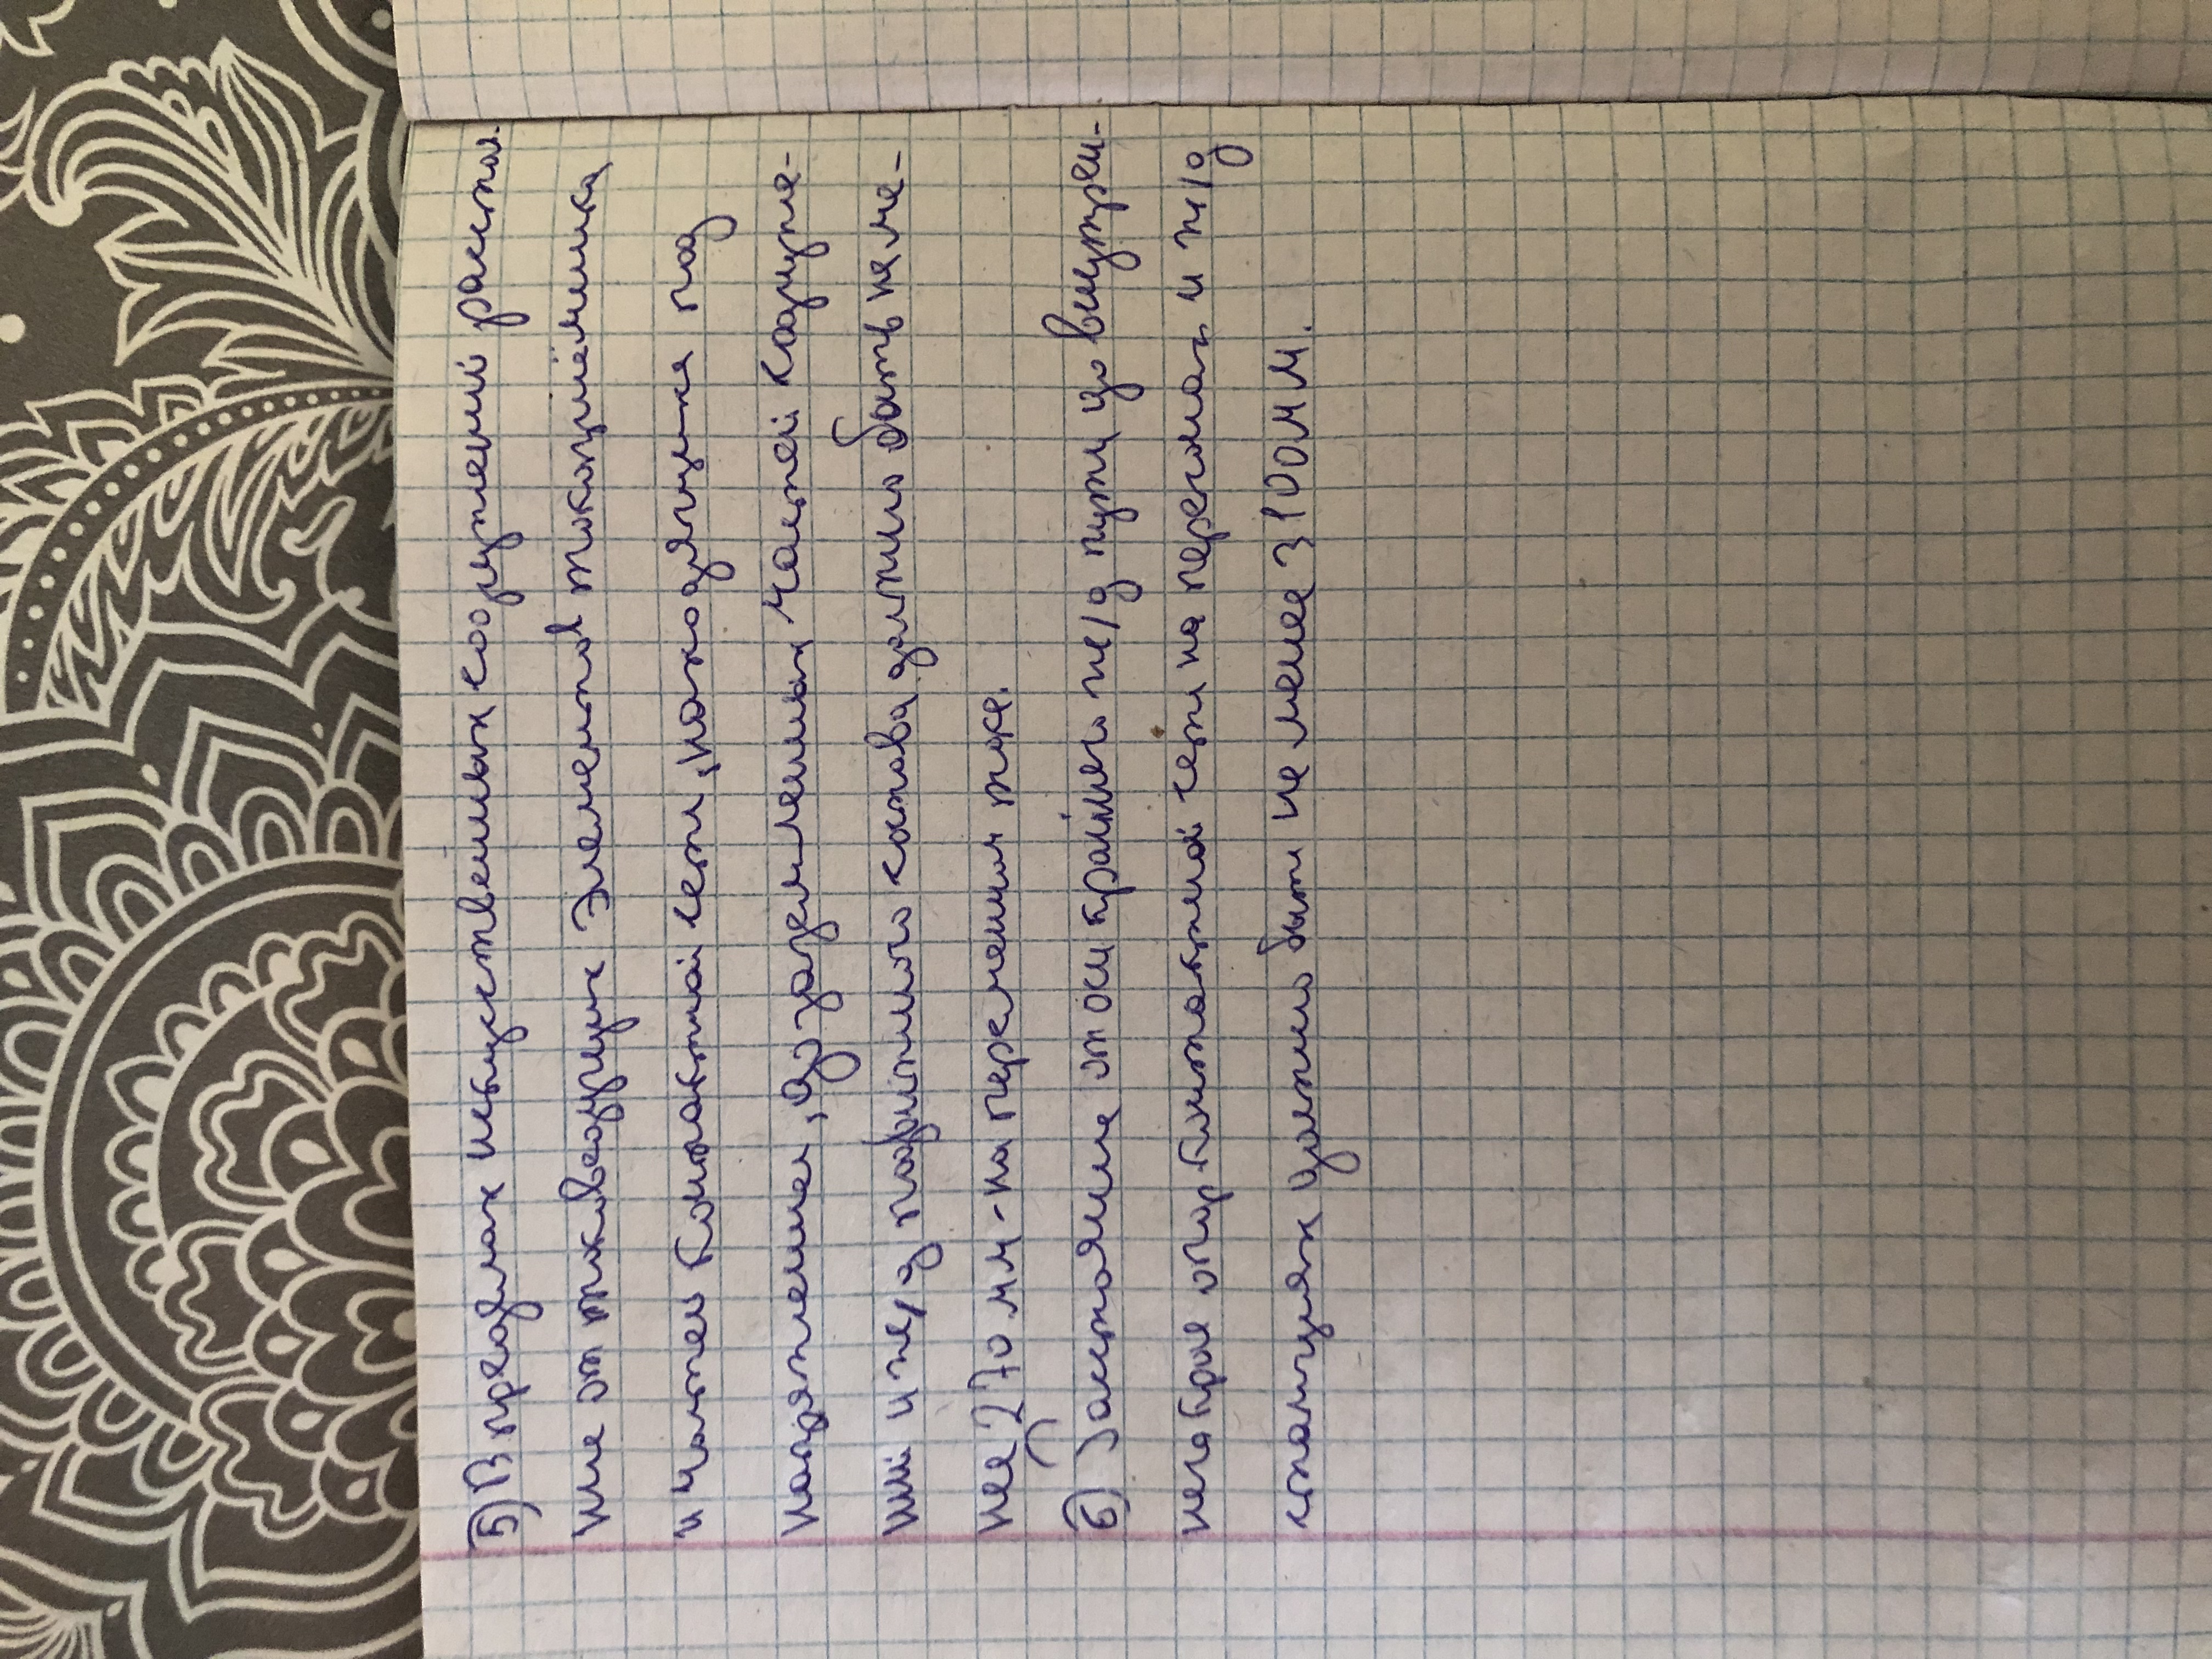 5) В пределах искусственных сооружений расстоя-
ние от тоководущих элементов токоприёмника
и частей контактной сети, находящихся под
напряжением, до заземленных частей сооруже-
ний и п/д подвижного состава должно быть не ме-
нее 270 мм - на переменном токе.
6) Расстояние от оси крайнего ж/д пути до внутрен-
него края опор контактной сети на перегонах и ж/д
станциях должно быть не менее 3100 мм.